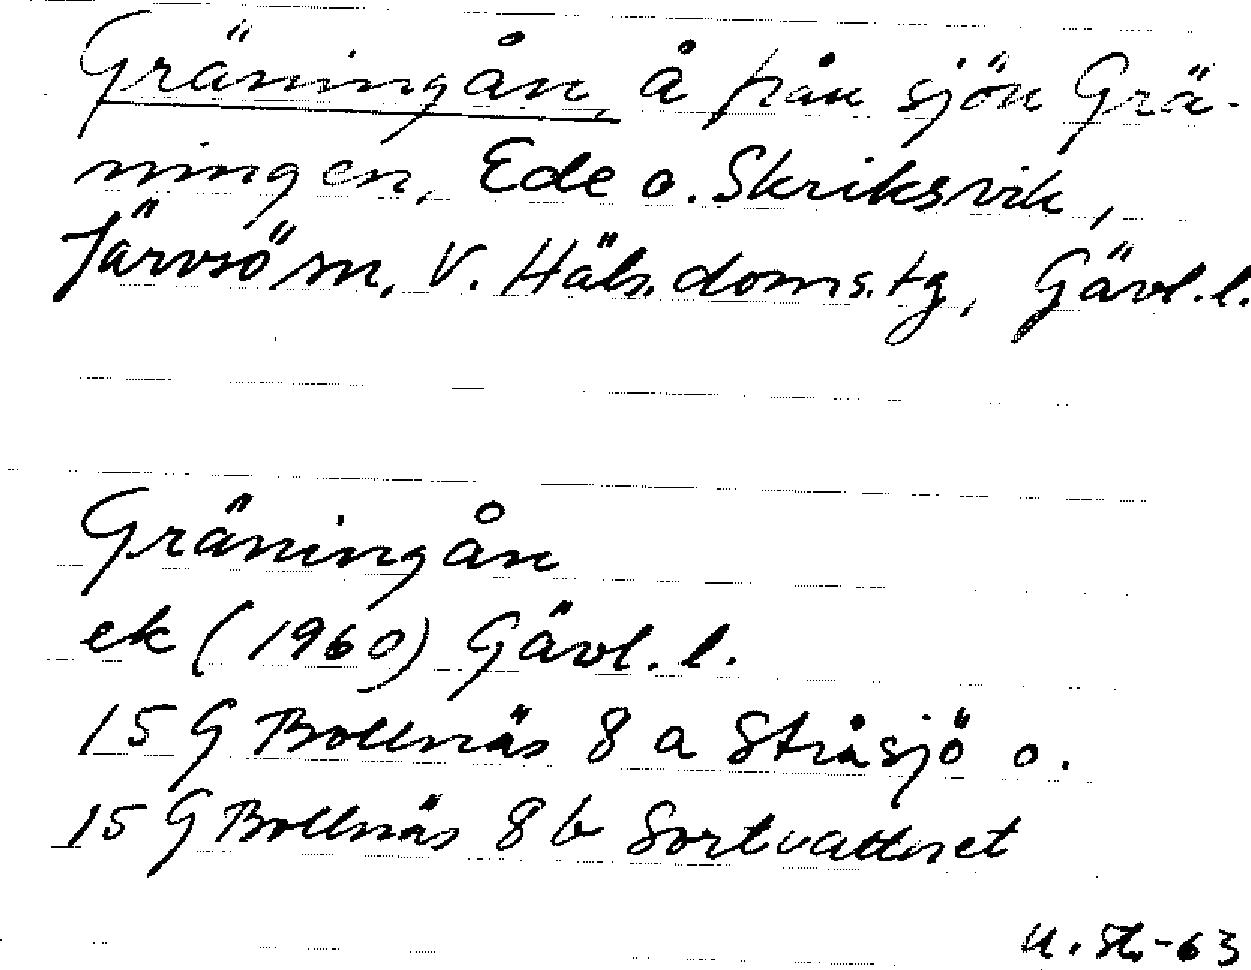 Gräningån, å från sjön Grä-
ningen, Ede o. Skriksvik,
Järvsö sn, V. Häls. doms.tg, Gävl.l.
Gräningån
ek (1960) Gävl. l.
15 G Bollnäs 8 a Stråsjö o.
15 G Bollnäs 8 b Sortvattnet
U. St. -63